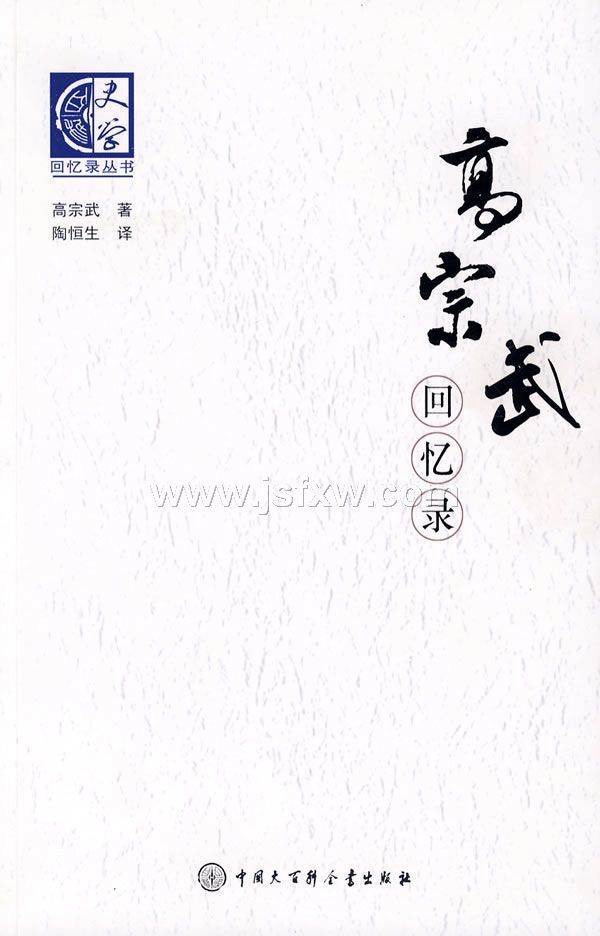 史学
回忆录丛书
高宗武 著
陶恒生 译
高宗武
回忆录
www.jsfxw.com
中国大百科全书出版社